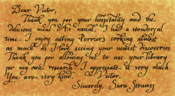 Dear Victor,
Thank you for your hospitality and the
delicious meal last night. I had a wonderful
time. I enjoy eating cooking almost
as much as I love seeing your newest discoveries
Thank you for allowing me to use your library
for my own research. I appreciate it very much
You are very kind Victor.
Sincerely, Sara